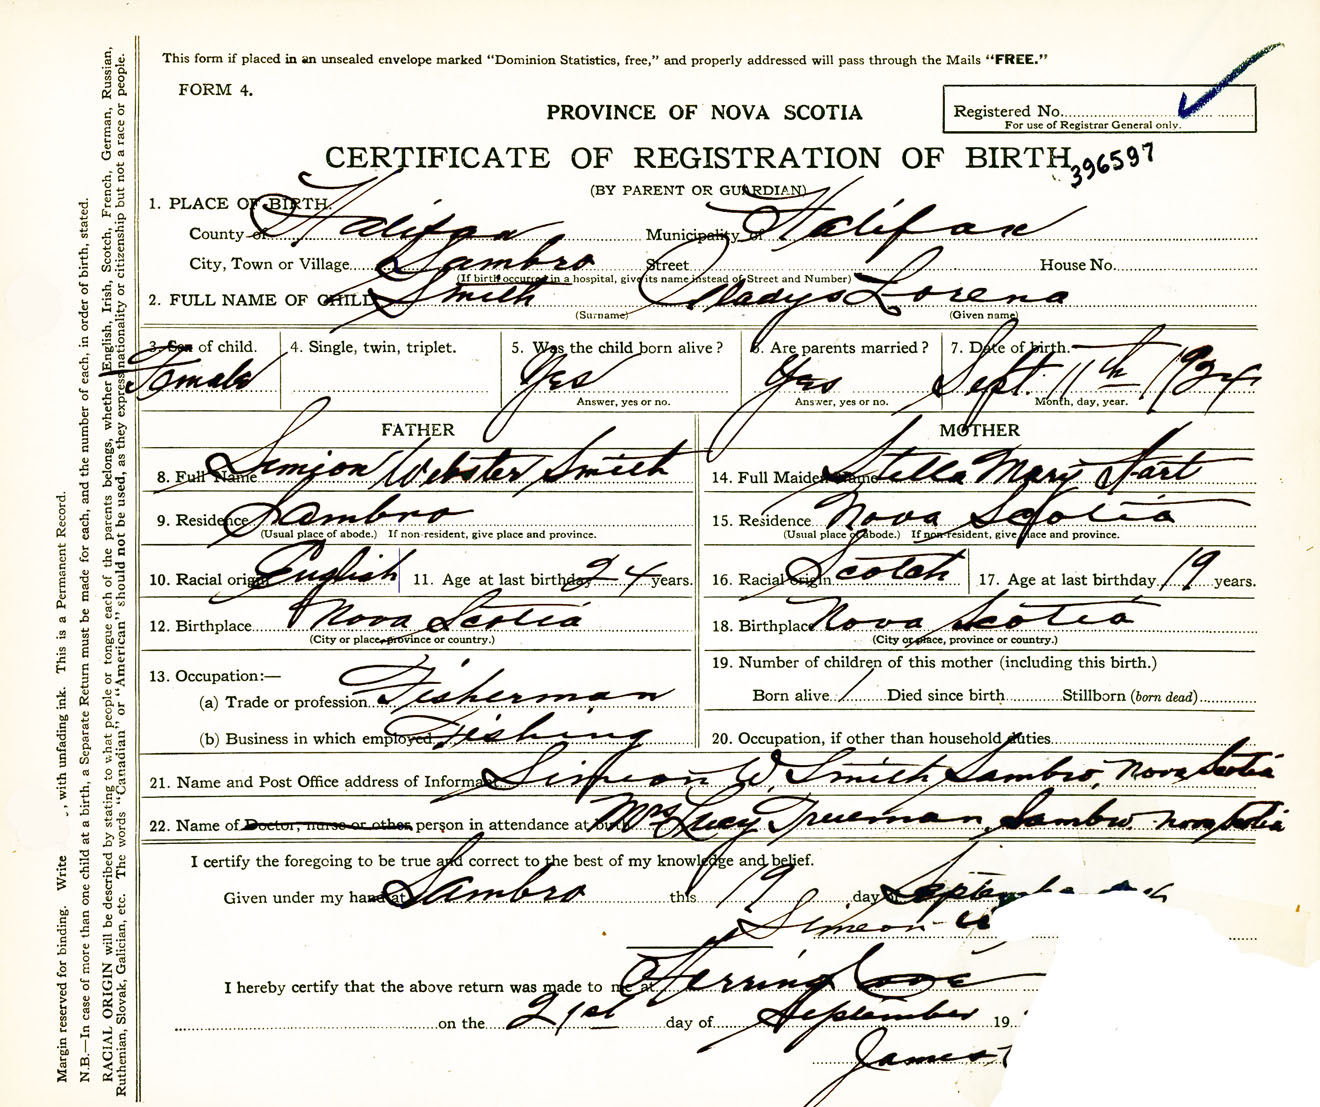 This form if placed in an unsealed envelope marked "Dominion Statistics, free," and properly addressed will pass through the Mails "FREE."
FORM 4.
PROVINCE OF NOVA SCOTIA
Registered No.
For use of Registrar General only.
CERTIFICATE OF REGISTRATION OF BIRTH
396597
(BY PARENT OR GUARDIAN)
1. PLACE OF BIRTH.
County of Halifax Municipality of Halifax
City, Town or Village Sambro Street House No.
(If birth occurred in a hospital, give its name instead of Street and Number)
2. FULL NAME OF CHILD Smith Gladys Lorena
(Surname) (Given name)
3. Sex of child. 4. Single, twin, triplet. 5. Was the child born alive? 6. Are parents married? 7. Date of birth.
Female Yes Yes Sept. 11th 1924
Answer, yes or no. Answer, yes or no. Month, day, year.
FATHER MOTHER
8. Full Name Simion Webster Smith 14. Full Maiden Name Stella Mary Hart
9. Residence Sambro 15. Residence Nova Scotia
(Usual place of abode.) If non-resident, give place and province. (Usual place of abode.) If non-resident, give place and province.
10. Racial origin English 11. Age at last birthday 24 years. 16. Racial origin Scotch 17. Age at last birthday 19 years.
12. Birthplace Nova Scotia 18. Birthplace Nova Scotia
(City or place, province or country.) (City or place, province or country.)
13. Occupation:— 19. Number of children of this mother (including this birth.)
(a) Trade or profession Fisherman Born alive 1 Died since birth Stillborn (born dead)
(b) Business in which employed Fishing 20. Occupation, if other than household duties
21. Name and Post Office address of Informant Simeon W. Smith Sambro Nova Scotia
22. Name of Doctor, nurse or other person in attendance at birth Mrs Lucy Trueman Sambro Nova Scotia
I certify the foregoing to be true and correct to the best of my knowledge and belief.
Given under my hand at Sambro this 19 day of September
Simeon
I hereby certify that the above return was made to me at Herring Cove
on the 21st day of September 19
James
Margin reserved for binding. Write , with unfading ink. This is a Permanent Record.
N.B.—In case of more than one child at a birth, a Separate Return must be made for each, and the number of each, in order of birth, stated.
RACIAL ORIGIN will be described by stating to what people or tongue each of the parents belongs, whether English, Irish, Scotch, French, German, Russian,
Ruthenian, Slovak, Galician, etc. The words "Canadian" or "American" should not be used, as they express nationality or citizenship but not a race or people.